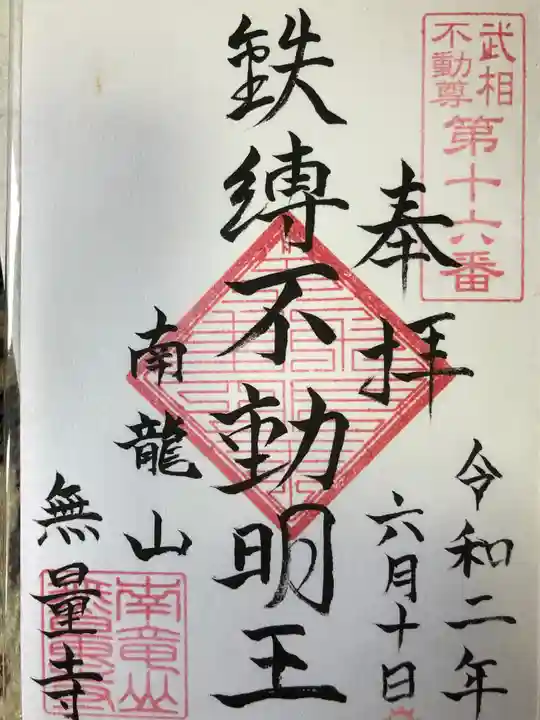 武相
不動尊
第十六番
奉拝
令和二年
六月十日
鉄縛不動明王
南龍山
無量寺
南竜山
無量寺